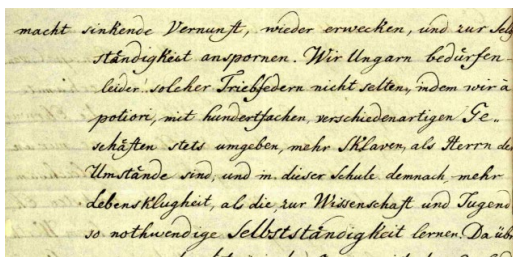 macht sinkende Vernunft, wieder erwecken, und zur Selb
ständigkeit anspornen. Wir Ungarn bedürfen
leider solcher Triebfedern nicht selten, indem wir à
potiori, mit hundertfachen, verschiedenartigen Ge-
schäften stets umgeben, mehr Sklaven, als Herrn der
Umstände sind, und in dieser Schule demnach mehr
Lebensklugheit, als die zur Wissenschaft und Tugend
so nothwendige Selbstständigkeit lernen. Da übr